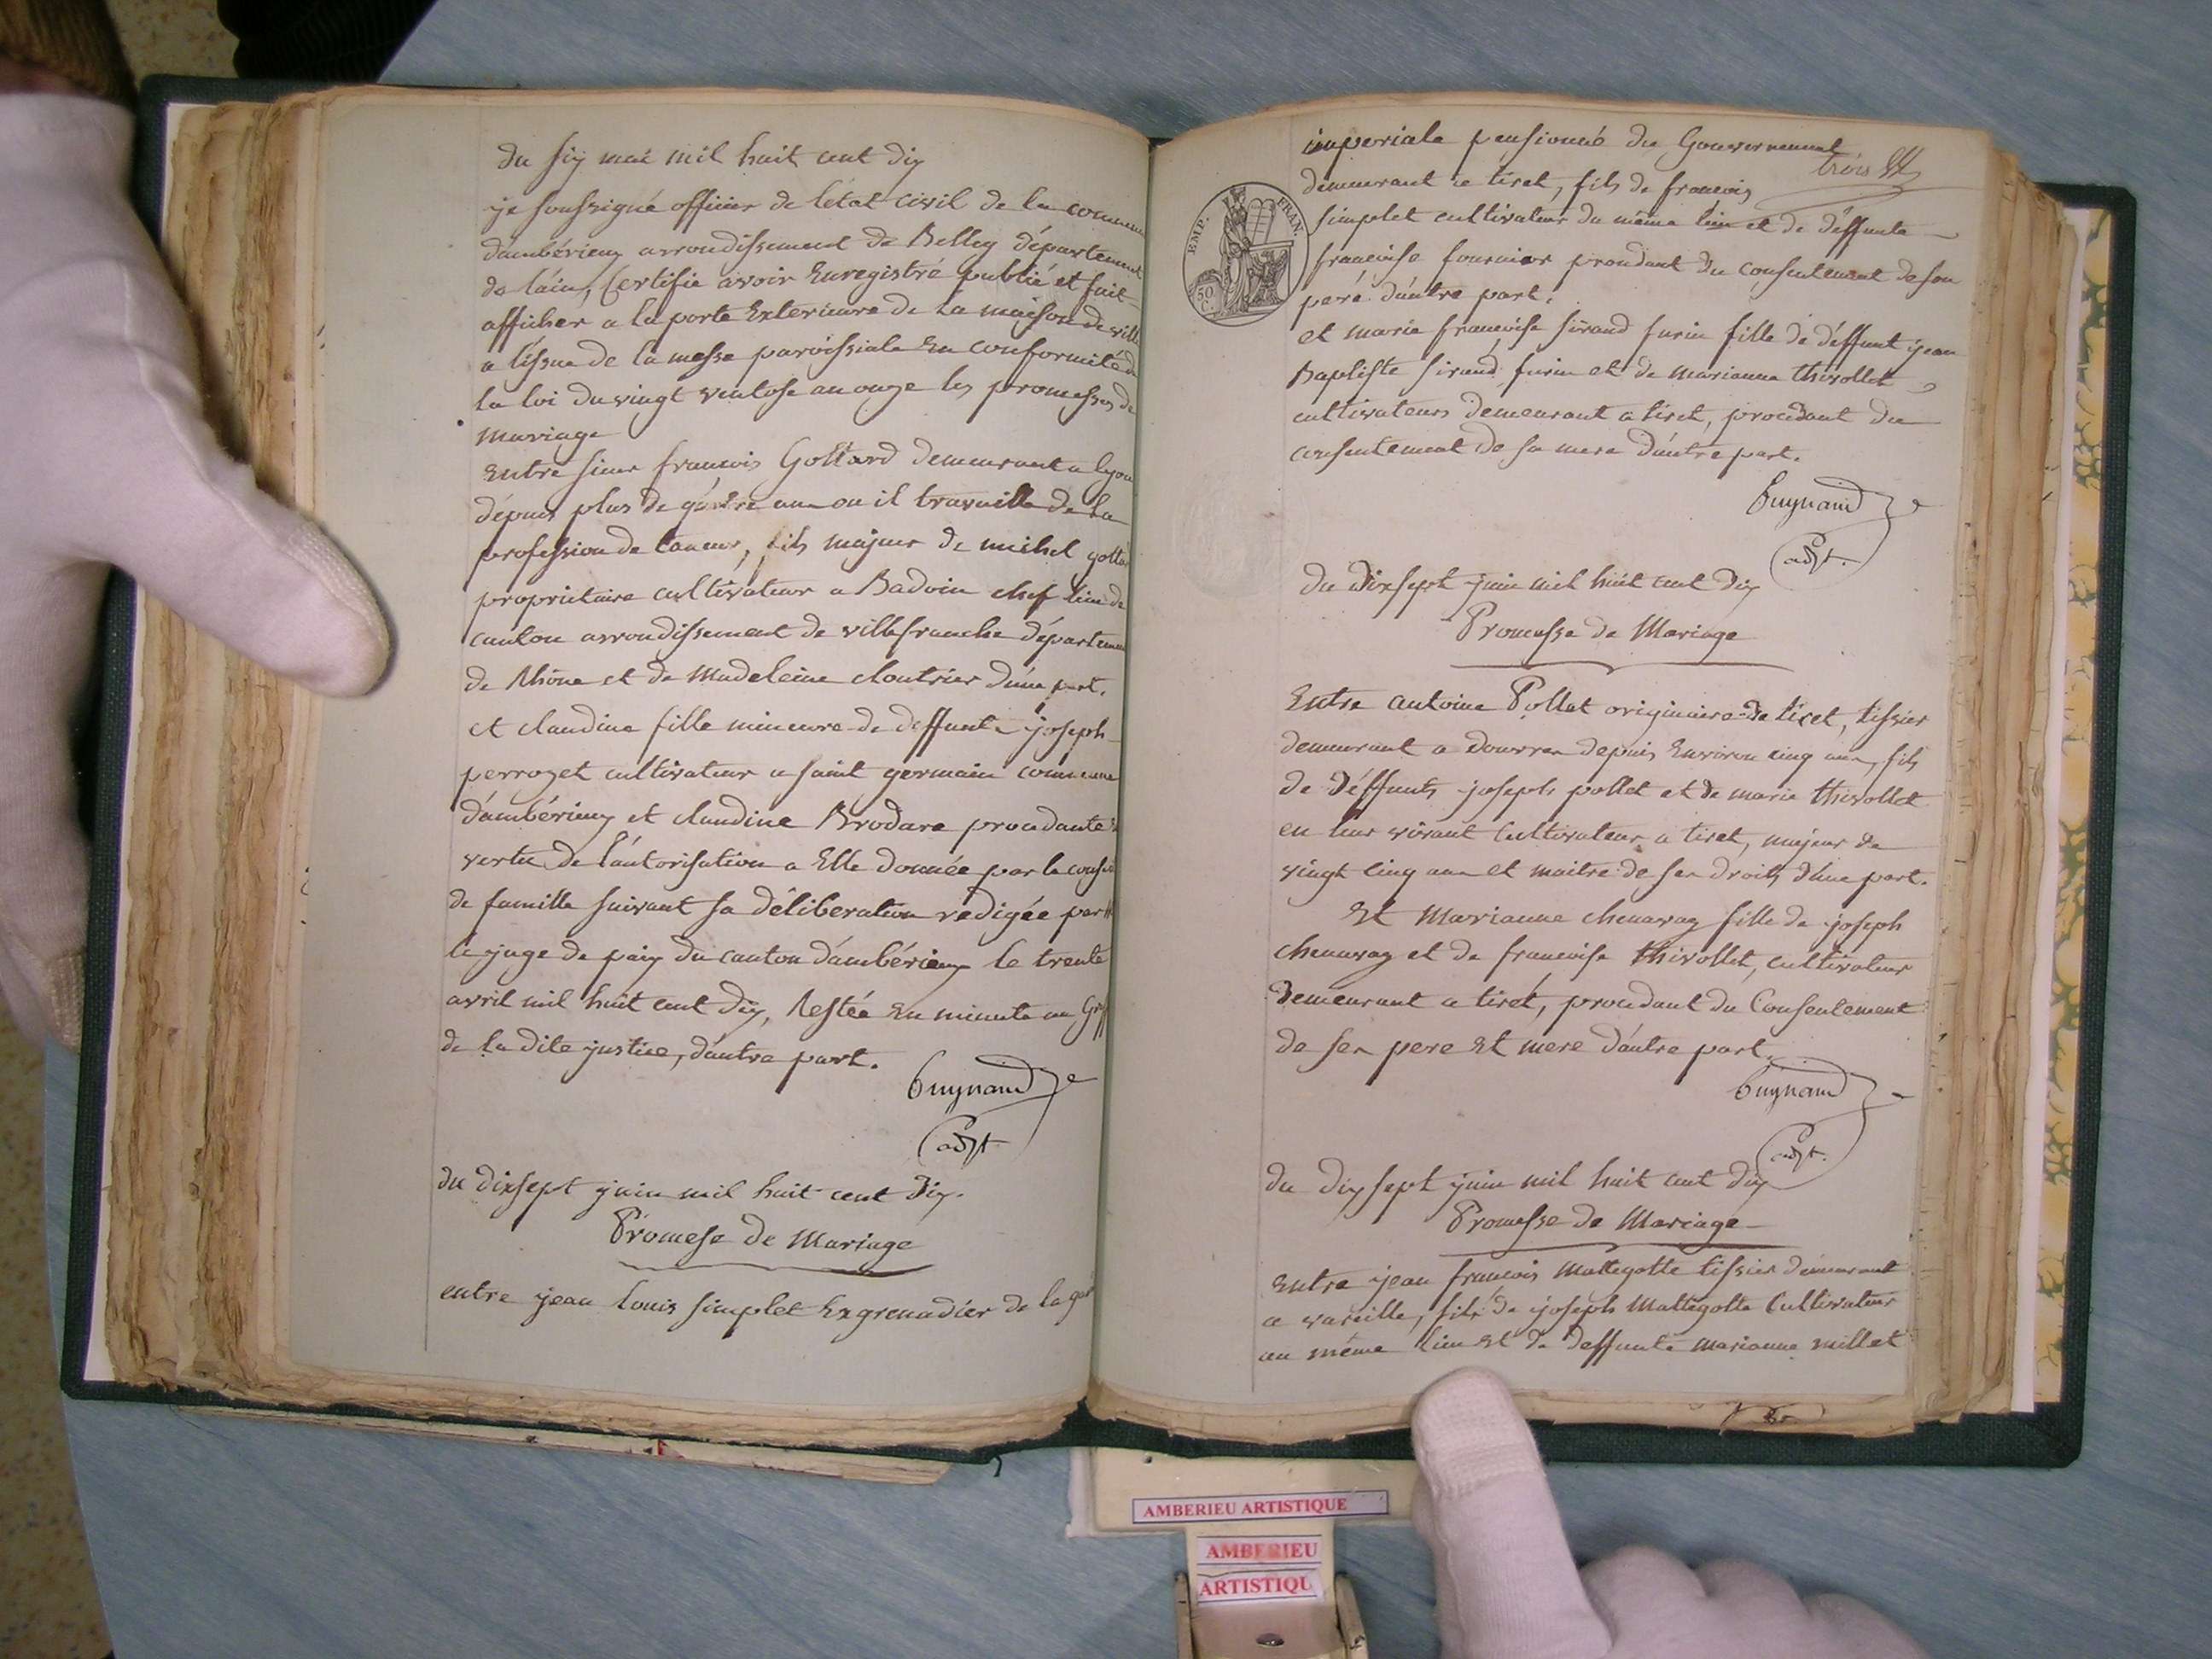 du six mai mil huit cent dix
je soussigné officier de l'état civil de la commune
d'ambérieux arrondissement de Belley département
de l'ain, certifie avoir Enregistré publié et fait
afficher a la porte Exterieure de la maison de ville
a l'issue de la messe paroissiale En conformité de
la loi du vingt ventose an onze les promesses de
mariage
Entre sieur francois Gottard demeurant a lyon
dépuis plus de quatre ans ou il travaille de la
profession de taneur, fils majeur de michel gottard
propriétaire cultivateur a Badoin chef lieu de
canton arrondissement de villefranche département
de Rhône et de Madeleine cloutrier d'une part.
et claudine fille mineure de deffunt joseph
perrozet cultivateur a saint germain commune
d'ambérieux et claudine Brodare procedante en
vertu de l'autorisation a Elle donnée par le conseil
de famille suivant sa déliberation redigée par
le juge de paix du canton d'ambérieux le trente
avril mil huit cent dix, Restée En minute au Greff
de la dite justice, d'autre part.
Guynand
adjt.
du dixsept juin mil huit cent dix.
Promese de Mariage
entre jean louis simplet Exgrenadier de la gar
imperiale pensionné du Gouvernement
trois
demeurant a tiret, fils de francois
simplet cultivateur du même lieu et de déffunte
francoise fournier procedant du consentement de son
peré d'autre part.
et marie francoise sirand furin fille de déffunt jean
Baptiste sirand furin et de marianne thivollet
cultivateurs demeurant a tiret, procedant du
consentement de sa mere d'autre part.
EMP. FRAN.
50 C.
Guynand
adjt.
du dixsept juin mil huit cent dix
Promesse de Mariage
Entre antoine Pollet originaire de tiret, tissier
demeurant a douvres depuis Environ cinq ans, fils
de déffunts joseph pollet et de marie thivollet
en leur vivant Cultivateurs a tiret, majeur de
vingt cinq ans et maitre de ses droits d'une part.
Et Marianne chenavaz fille de joseph
chenavaz et de francoise thivollet, cultivateurs
demeurant a tiret, procedant du Consentement
de ses pere Et mere d'autre part.
Guynand
adjt.
du dix sept juin mil huit cent dix
Promesse de Mariage
Entre jean francois Mattegotte tissier demeurant
a vareille, fils de joseph Mattegotte Cultivateur
au même lieu Et de deffunte marianne millet
AMBERIEU ARTISTIQUE
AMBERIEU
ARTISTIQU